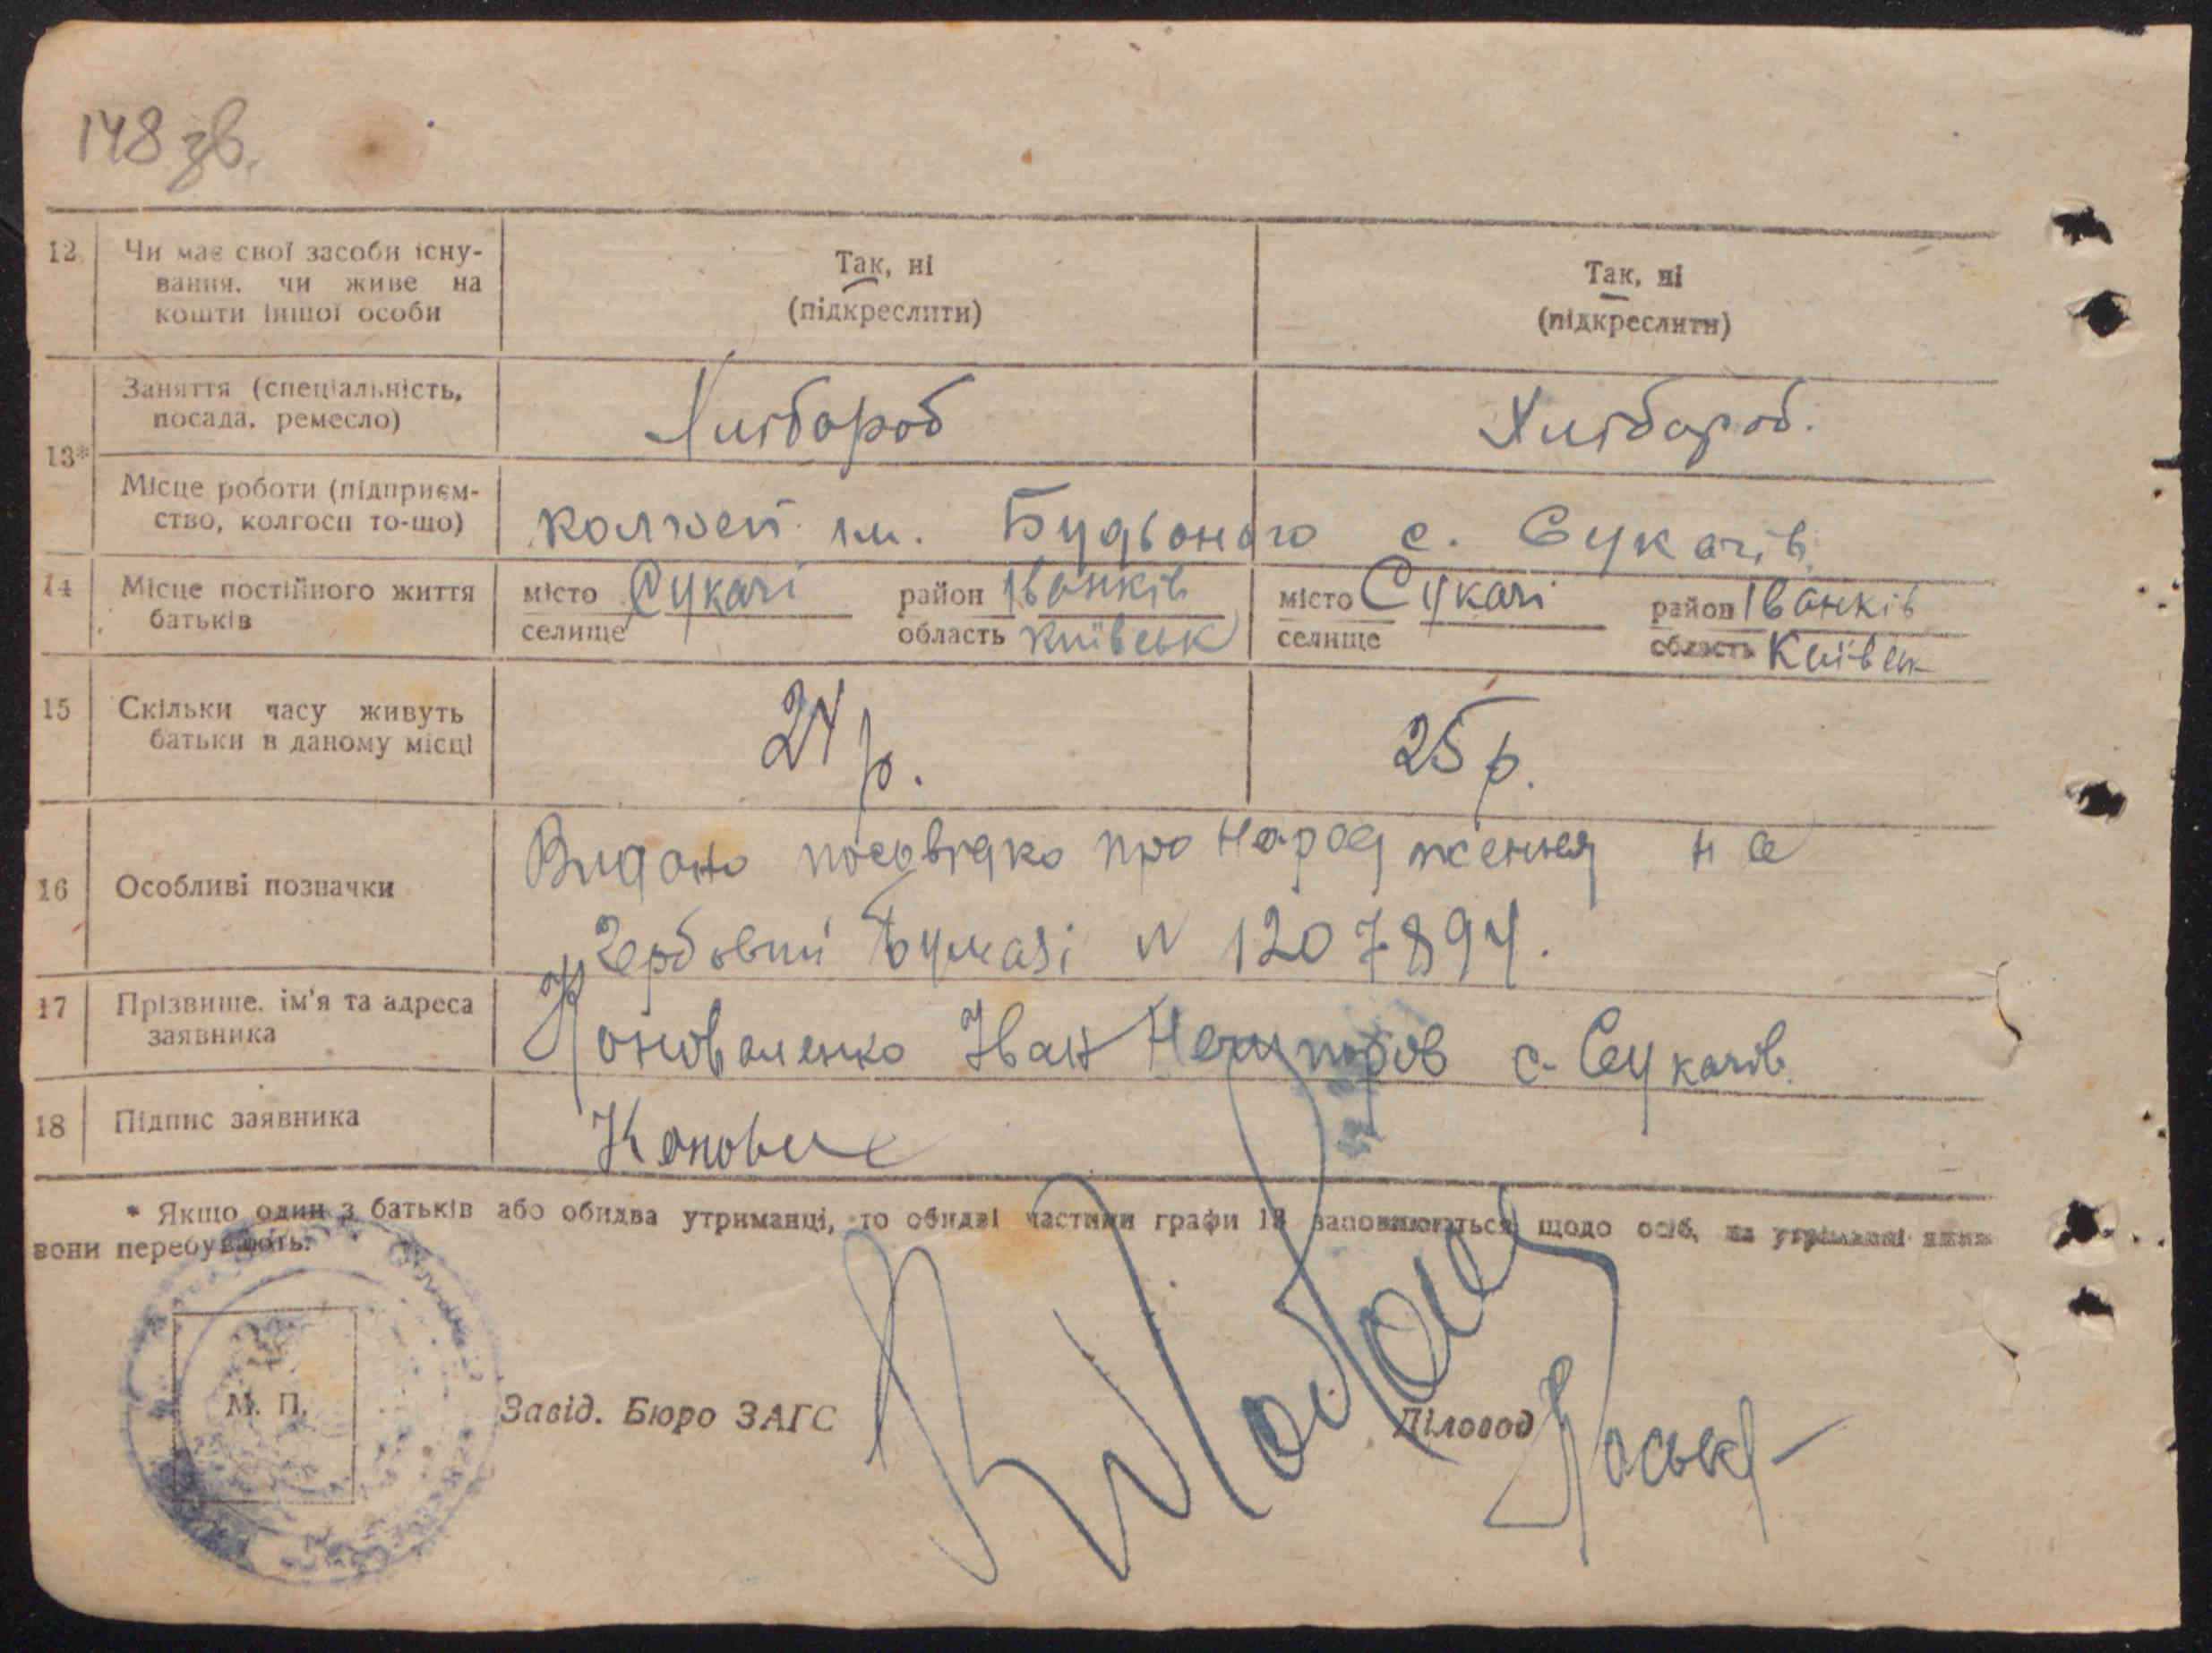 148 зв.
12 Чи має свої засоби існу- Так, ні Так, ні
вання, чи живе на (підкреслити) (підкреслити)
кошти іншої особи
13* Заняття (спеціальність, Хлібороб Хлібороб.
посада, ремесло)
Місце роботи (підприєм- ім. Будьоного с. Сукачів
ство, колгосп то-що)
14 Місце постійного життя місто Сукачі район Іванків місто Сукачі район Іванків
батьків селище область Київськ селище область Київськ
15 Скільки часу живуть 24 р. 25 р.
батьки в даному місці
16 Особливі позначки Видано посвідка про народження на
гербовій бумазі N 1207894.
17 Прізвище, ім'я та адреса Коноваленко Іван Нечипоров с. Сукачів
заявника
18 Підпис заявника
* Якщо один з батьків або обидва утриманці, то обидві частини графи 13 заповнюються щодо осіб, на утриманні яких
вони перебувають.
М. П. Завід. Бюро ЗАГС Діловод